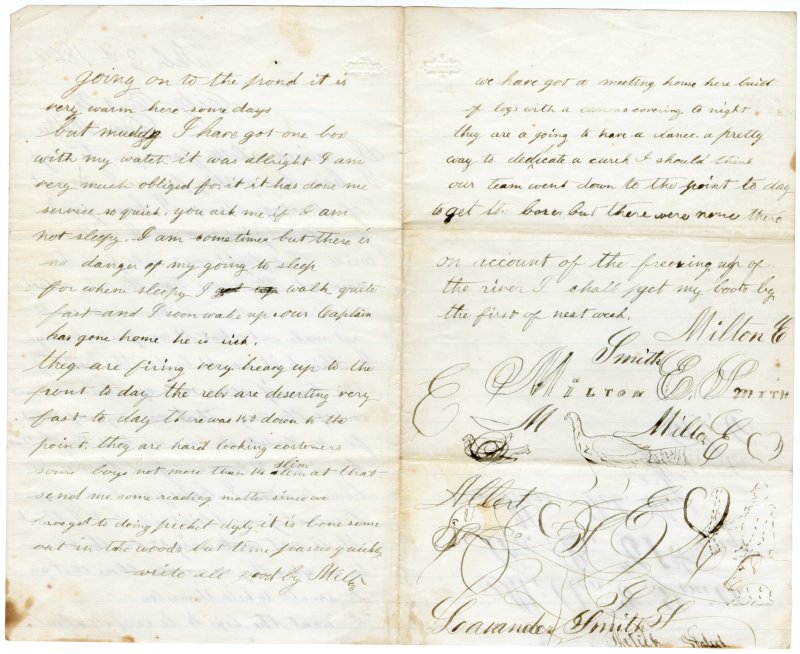 going on to the pond it is
very warm here some days
but muddy I have got one box
with my watch it was allright I am
very much obliged for it it has done me
service so quick. you ask me if I am
not sleepy. I am sometimes but there is
no danger of my going to sleep
for when sleepy I walk quite
fast and I soon wake up. our Captain
has gone home he is sick.
they are firing very heavy up to the
front to day the rebs are deserting very
fast to day there was 150 down to the
point. they are hard looking costomers
some boys not more than slim at that
send me some reading matter since we
have got to doing picket duty it is lonesome
out in the woods but time passes quickly
write all good by Milt
we have got a meeting house here build
of logs with a canvas covering to night
they are a going to have a dance. a pretty
way to dedicate a I should think
our team went down to the point to day
to get the boxes but there were none there
on account of the freezing up of
the river I shall get my boots by
the first of next week.
Milton E
Smith
E Milton E. Smith
M Milton E
Albert
E
Leavander Smith